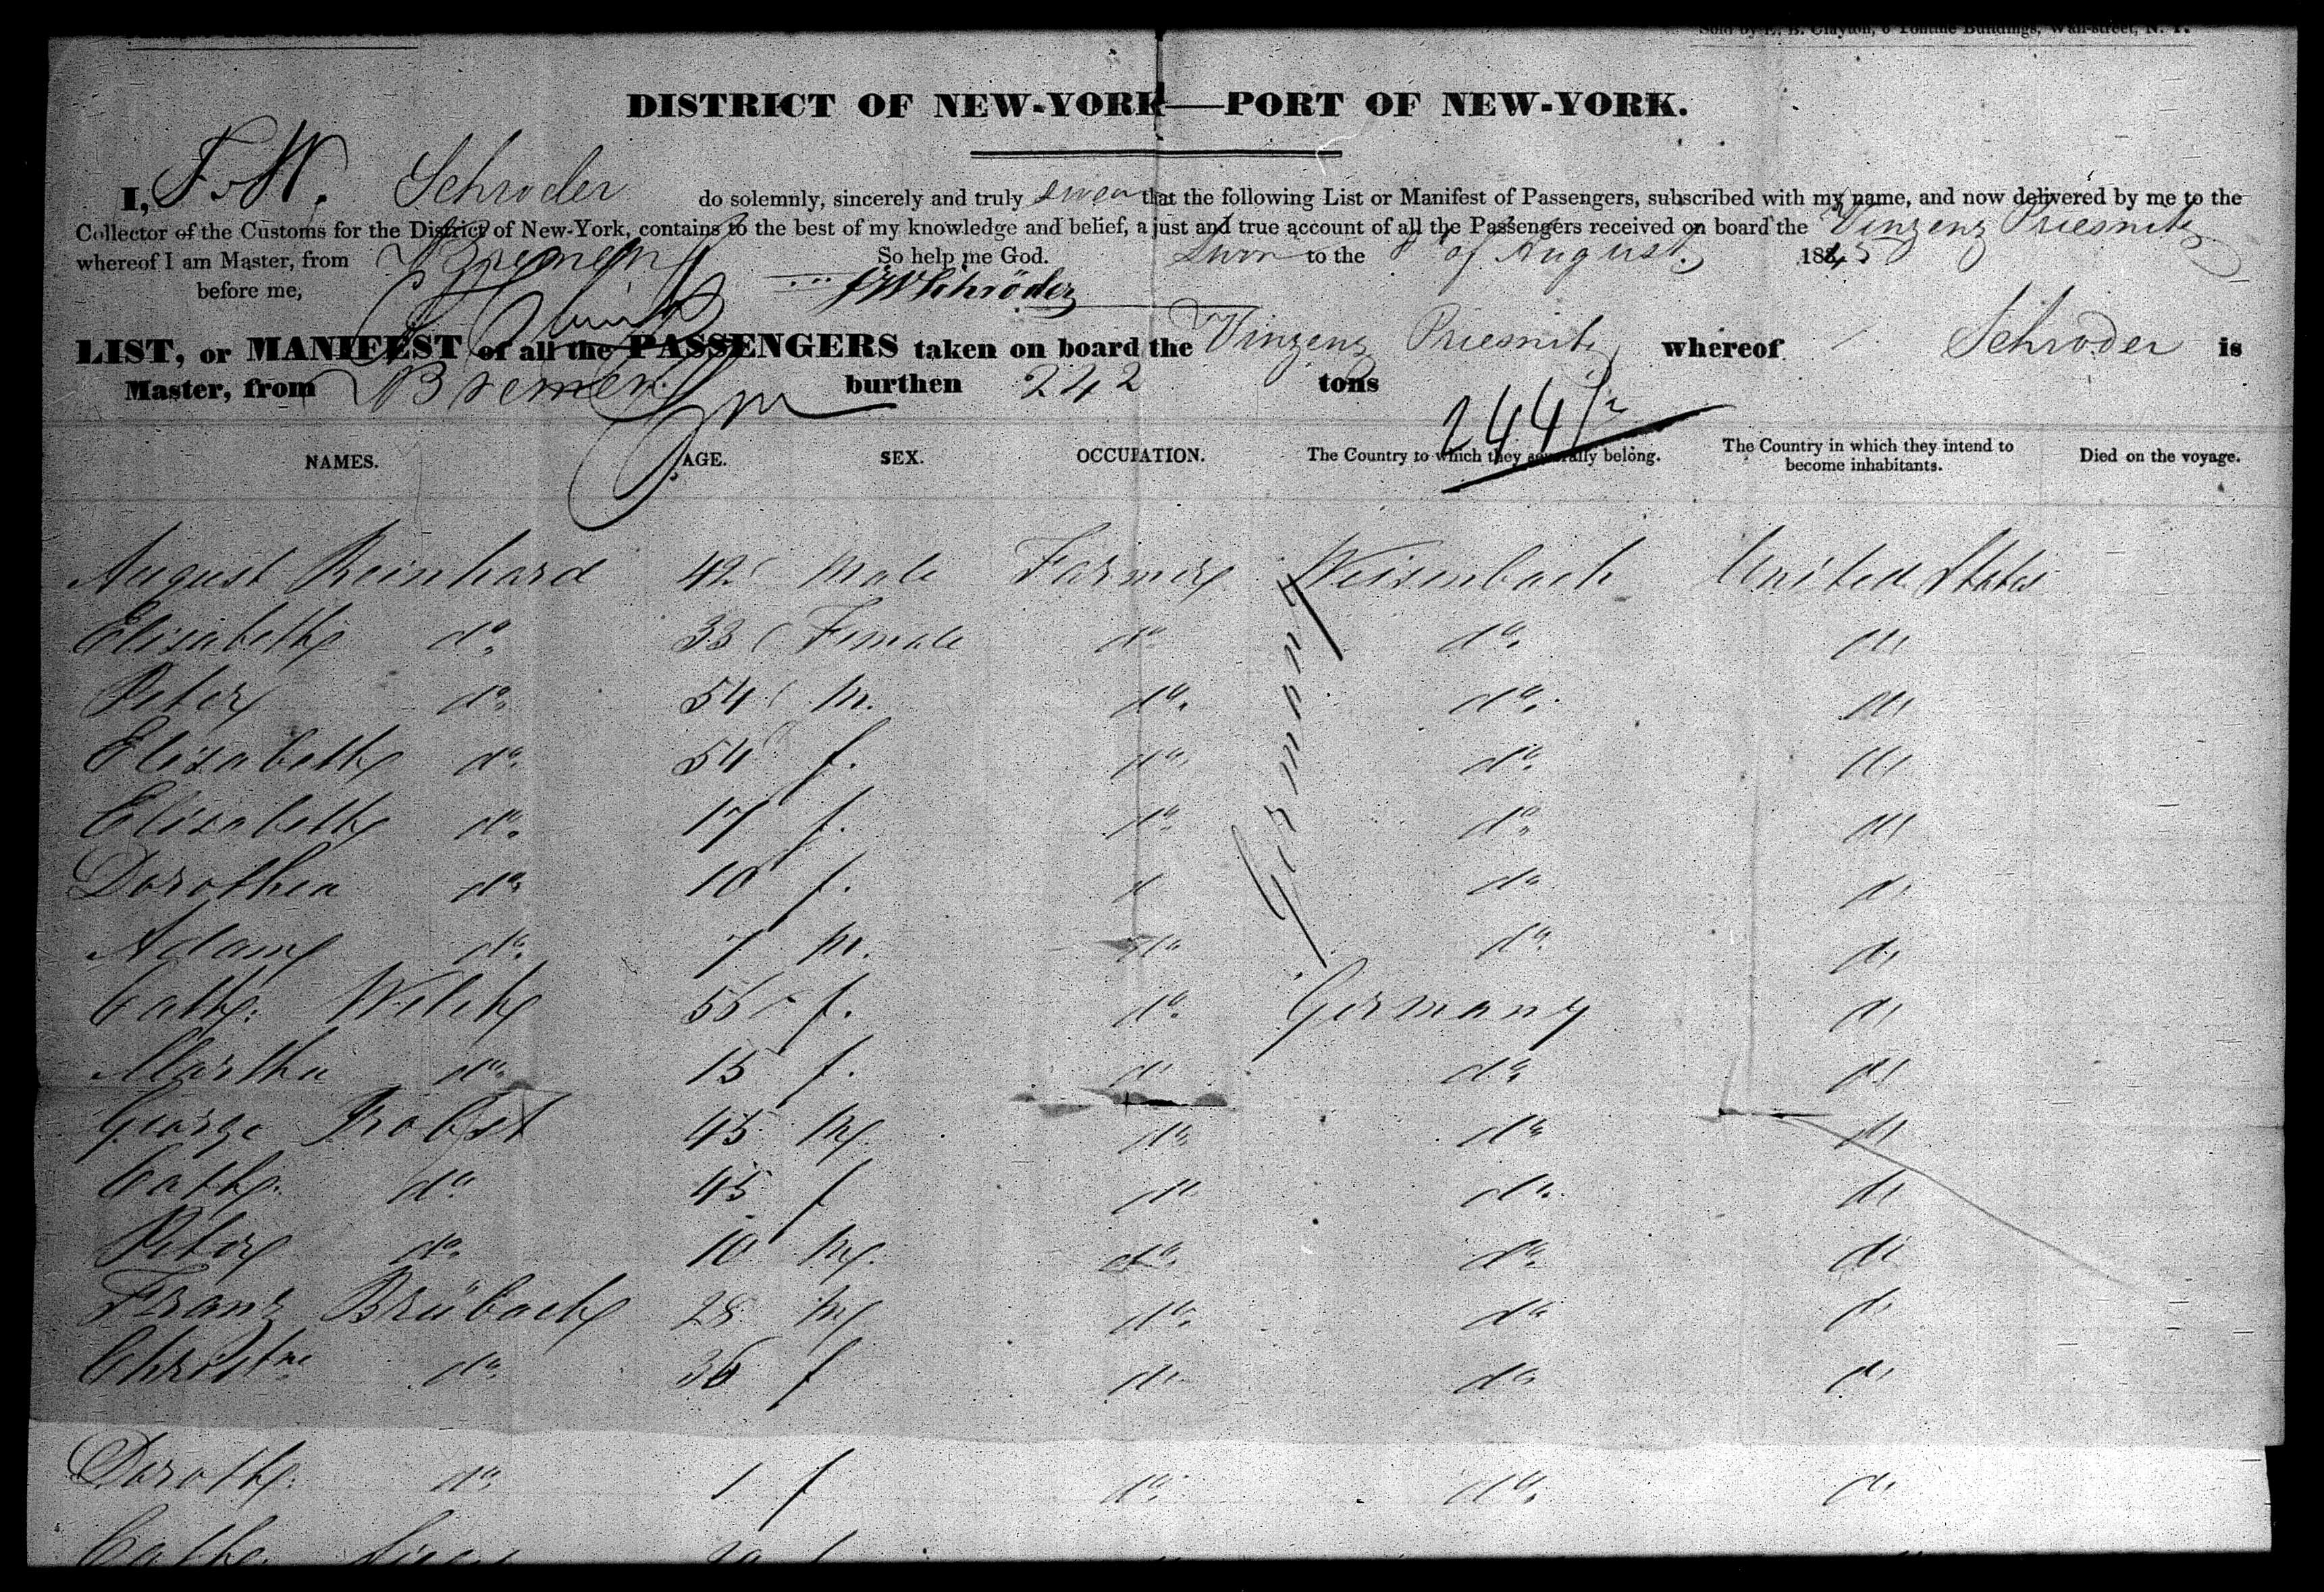 Sold by E. B. Clayton, 6 Tontine Buildings, Wall-street, N. Y.
DISTRICT OF NEW-YORK—PORT OF NEW-YORK.
I, F. W. Schroder do solemnly, sincerely and truly swear that the following List or Manifest of Passengers, subscribed with my name, and now delivered by me to the
Collector of the Customs for the District of New-York, contains to the best of my knowledge and belief, a just and true account of all the Passengers received on board the Vinzenz Priesnitz
whereof I am Master, from Bremen So help me God. Sworn to the 8 of August 1845
before me, FWSchröder
LIST, or MANIFEST of all the PASSENGERS taken on board the Vinzenz Priesnitz whereof Schroder is
Master, from Bremen burthen 242 tons
244½
NAMES. AGE. SEX. OCCUPATION. The Country to which they severally belong. The Country in which they intend to become inhabitants. Died on the voyage.
August Reinhard 42 Male Farmer Weisenbach United States
Elisabeth do. 33 Female do. do. do
Peter do. 54 m. do. do. do
Elisabeth do. 54 f. do. do. do
Elisabeth do. 17 f. do. do. do
Dorothea do. 10 f. d do. do
Adam do. 7 m. do do. do
Germany
Cath. 55 f. do. Germany do
Martha do. 15 f. do do. do
George Probst 45 m do. do. do
Cath. do. 45 f do do. do
Peter do. 10 m. do. do. do
Franz Brübach 28 m do. do do
Christne do. 36 f do do. do
Doroth. do. 1 f do. do. do
Cath.